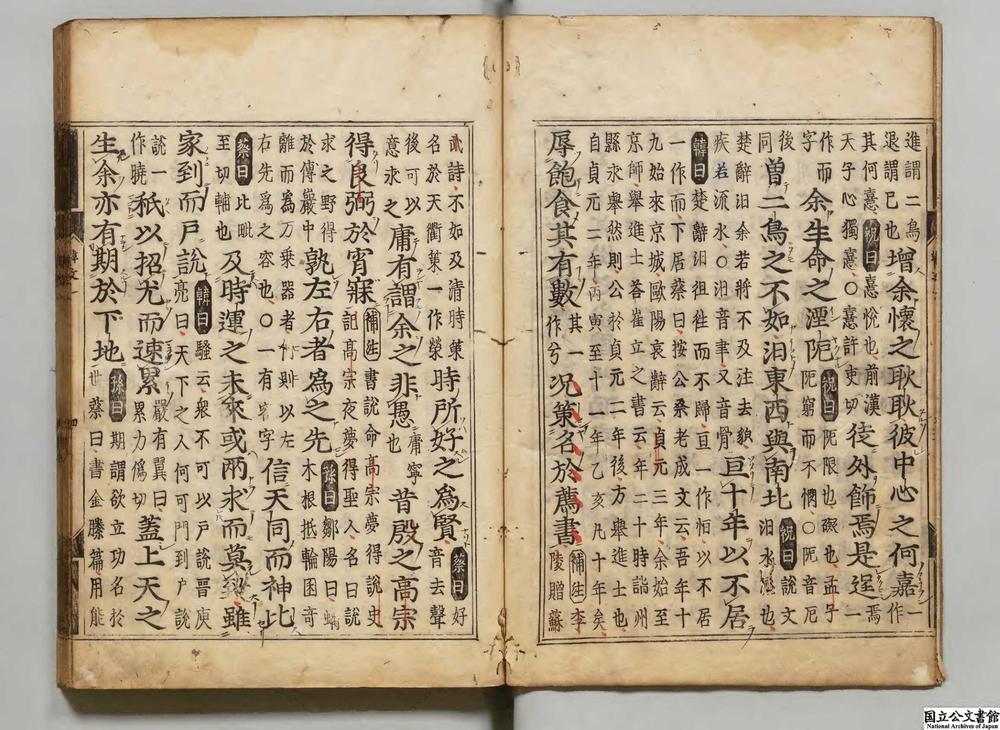 進謂二鳥退謂已也增余懷之耿耿彼中心之何嘉一作
其何憙祝曰憙悅也前漢天子心獨憙〇憙許吏切徒外飾焉是逞焉一
作而字余生命之湮阨祝曰阨限也礙也孟子阨窮而不憫〇阨音厄
後同曽二鳥之不如汩東西與南北祝曰說文汩水也
楚辭汩余若將不及注去貌疾若流水〇汩音聿又音骨亘十年以不居
韓曰楚辭汩徂徃而不歸亘一作恒以不居一作而下居蔡曰按公桑老成文云吾年十
九始來京城歐陽哀辭云貞元三年余始至京師舉進士荅崔立之書云年二十時詣州
縣求舉然則公於貞元二年後方舉進士也自貞元二年丙寅至十一年乙亥凡十年矣
辱飽食其有數其一作兮况策名於薦書補注李陵贈蘇
武詩不如及清時策名於天衢策一作榮時所好之爲賢蔡曰好音去聲
後可以意求之庸有謂余之非愚庸寧也昔殷之高宗
得良弼於宵寐補注書說命高宗夢得說史記高宗夜夢得聖人名曰說
求之野得於傅巖中孰左右者爲之先孫曰鄒陽曰蟠木根抵輪囷奇
離而為万乗器者何則以左右先為之容也〇一有幸字信天同而神比
蔡曰比毗至切輔也及時運之未來或兩求而莫致雖
家到而戶說韓曰騷云衆不可以戶說晉庾亮曰天下之人何可門到戶說
說一作曉祇以招尤而速累嚴有翼曰累力僞切蓋上天之
生余亦有期於下地孫曰期謂欲立功名於世蔡曰書金縢篇用能
国立公文書館
National Archives of Japan